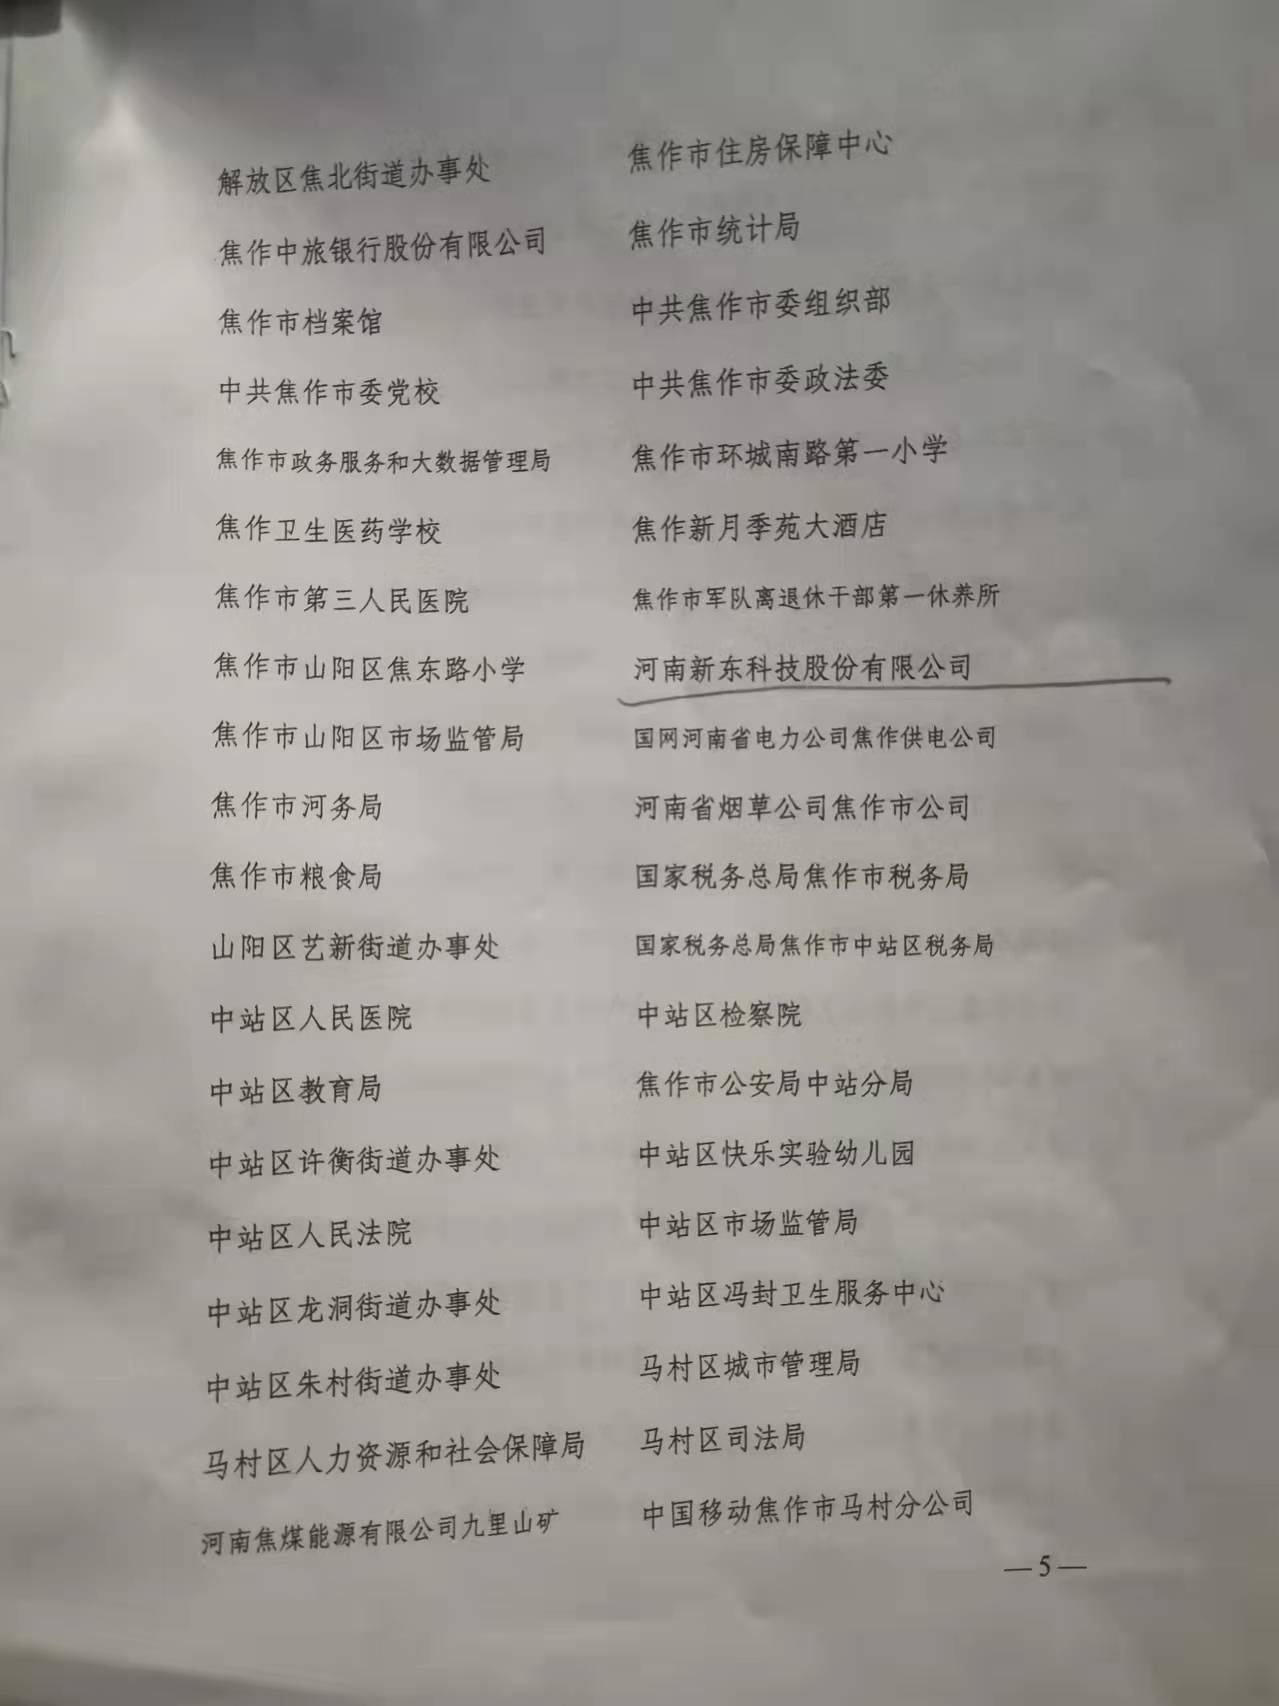 解放区焦北街道办事处 焦作市住房保障中心
焦作中旅银行股份有限公司 焦作市统计局
焦作市档案馆 中共焦作市委组织部
中共焦作市委党校 中共焦作市委政法委
焦作市政务服务和大数据管理局 焦作市环城南路第一小学
焦作卫生医药学校 焦作新月季苑大酒店
焦作市第三人民医院 焦作市军队离退休干部第一休养所
焦作市山阳区焦东路小学 河南新东科技股份有限公司
焦作市山阳区市场监管局 国网河南省电力公司焦作供电公司
焦作市河务局 河南省烟草公司焦作市公司
焦作市粮食局 国家税务总局焦作市税务局
山阳区艺新街道办事处 国家税务总局焦作市中站区税务局
中站区人民医院 中站区检察院
中站区教育局 焦作市公安局中站分局
中站区许衡街道办事处 中站区快乐实验幼儿园
中站区人民法院 中站区市场监管局
中站区龙洞街道办事处 中站区冯封卫生服务中心
中站区朱村街道办事处 马村区城市管理局
马村区人力资源和社会保障局 马村区司法局
河南焦煤能源有限公司九里山矿 中国移动焦作市马村分公司
— 5 —